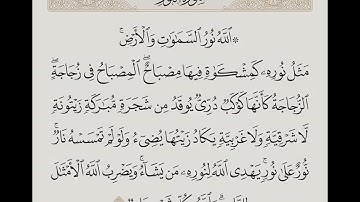 ۞ٱللَّهُ نُورُ ٱلسَّمَٰوَٰتِ وَٱلْأَرْضِۚ
مَثَلُ نُورِهِۦ كَمِشْكَوٰةٍ فِيهَا مِصْبَاحٌۖ ٱلْمِصْبَاحُ فِى زُجَاجَةٍۖ
ٱلزُّجَاجَةُ كَأَنَّهَا كَوْكَبٌ دُرِّىٌّ يُوقَدُ مِن شَجَرَةٍ مُّبَٰرَكَةٍ زَيْتُونَةٍ
لَّا شَرْقِيَّةٍ وَلَا غَرْبِيَّةٍ يَكَادُ زَيْتُهَا يُضِىٓءُ وَلَوْ لَمْ تَمْسَسْهُ نَارٌۚ
نُّورٌ عَلَىٰ نُورٍۗ يَهْدِى ٱللَّهُ لِنُورِهِۦ مَن يَشَآءُۚ وَيَضْرِبُ ٱللَّهُ ٱلْأَمْثَٰلَ